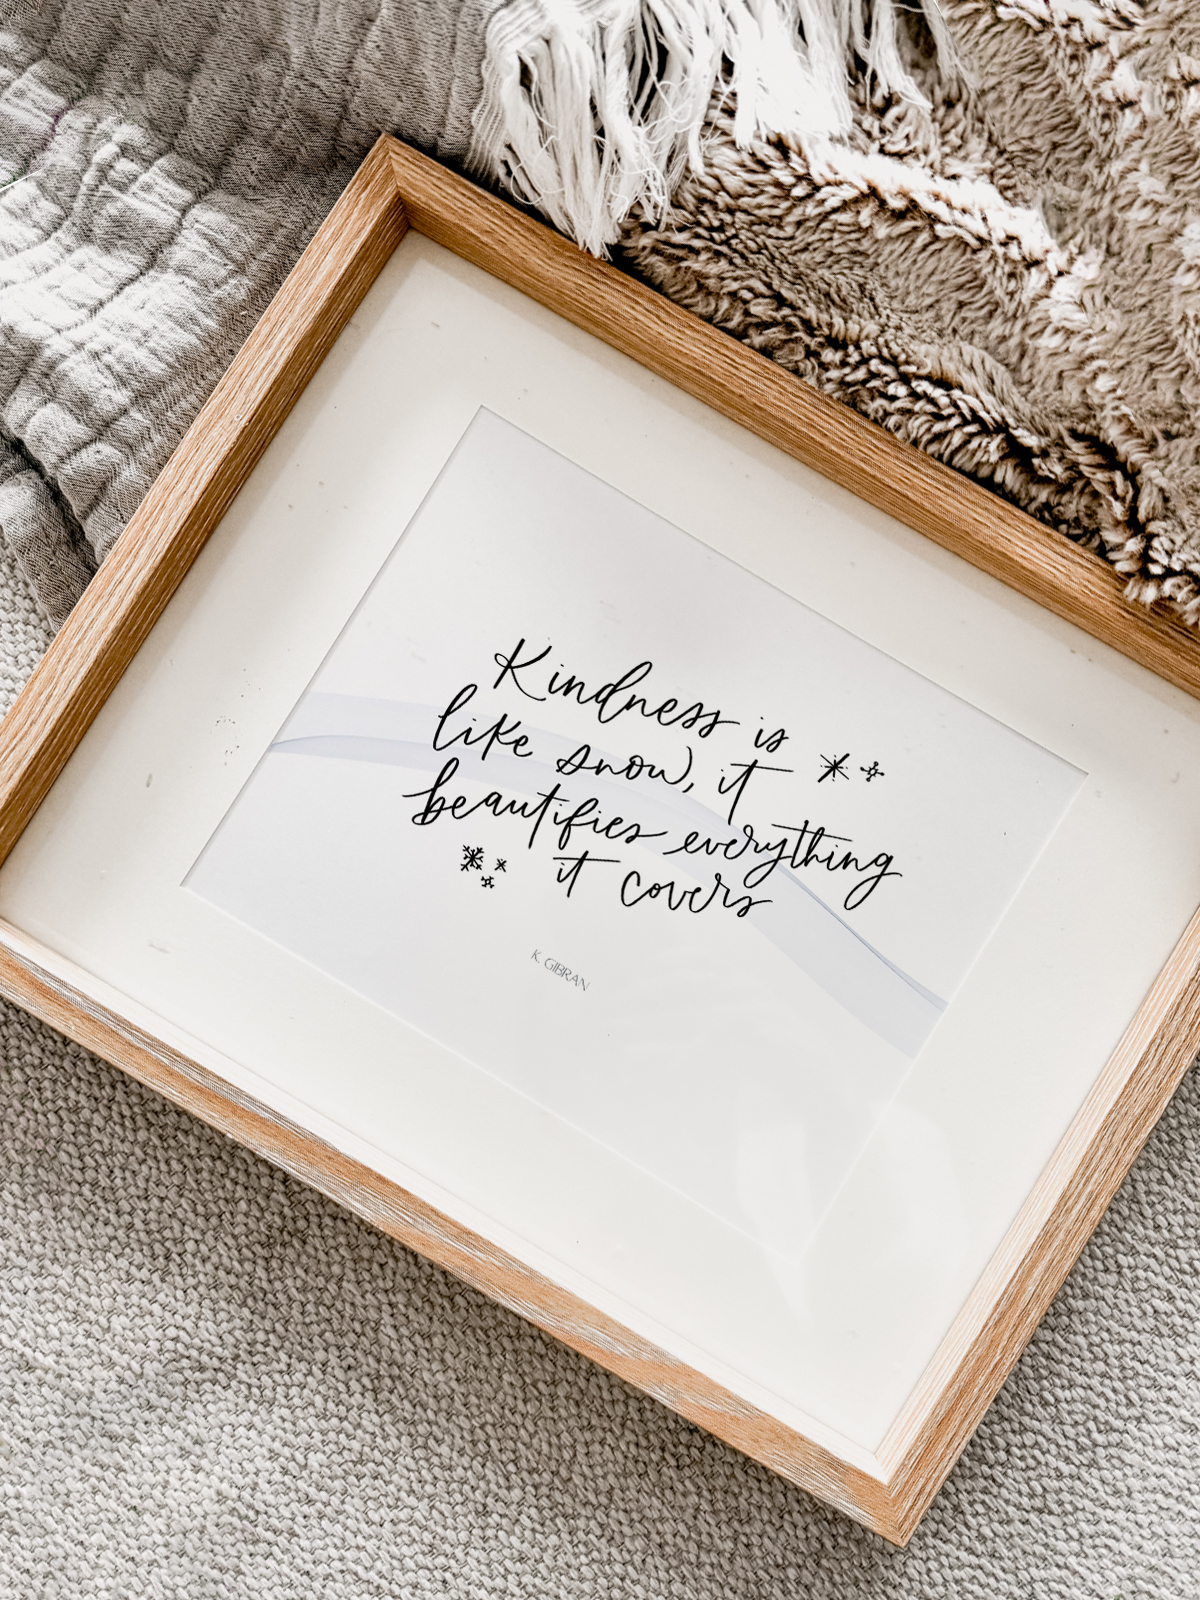 Kindness is
like snow, it
beautifies everything
it covers
K. GIBRAN